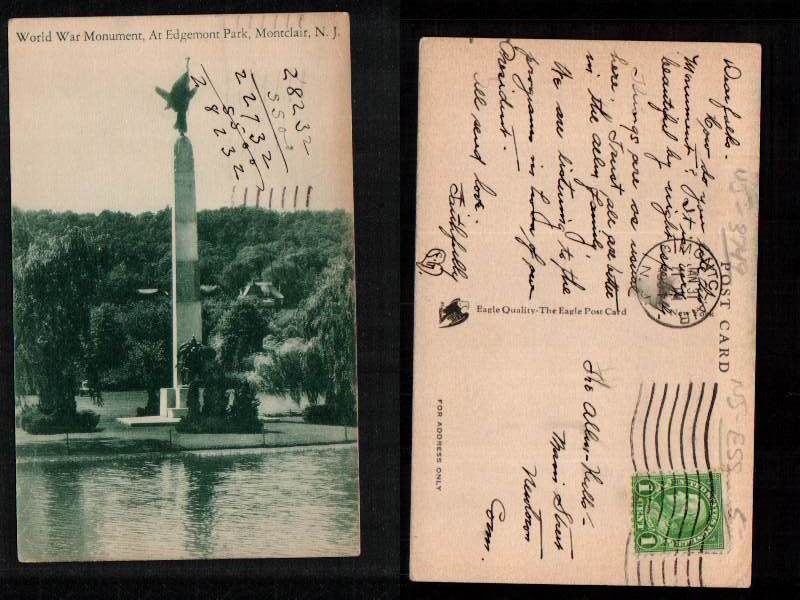 World War Monument, At Edgemont Park, Montclair, N. J.
28232
5500
22732
5500
28232
Dearfields -
How do you like the
Monument? It is very
beautiful by night especially.
Things are as usual
here. Trust all are better
in the Allen family.
We are listening to the
program in honor of our
President.
All send love.
Faithfully
POST CARD
JAN 31
N. J.
Eagle Quality - The Eagle Post Card
FOR ADDRESS ONLY
The Allen-Hills -
Main Street
Newtown
Conn.
NJ ESS
1 CENT 1